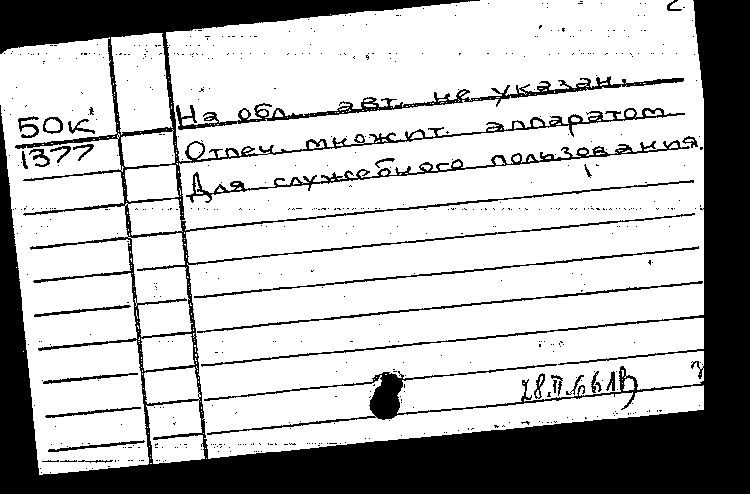 2
50К
1377
На обл. авт. не указан.
Отпеч. множит. аппаратом.
Для служебного пользования.
28.II.66